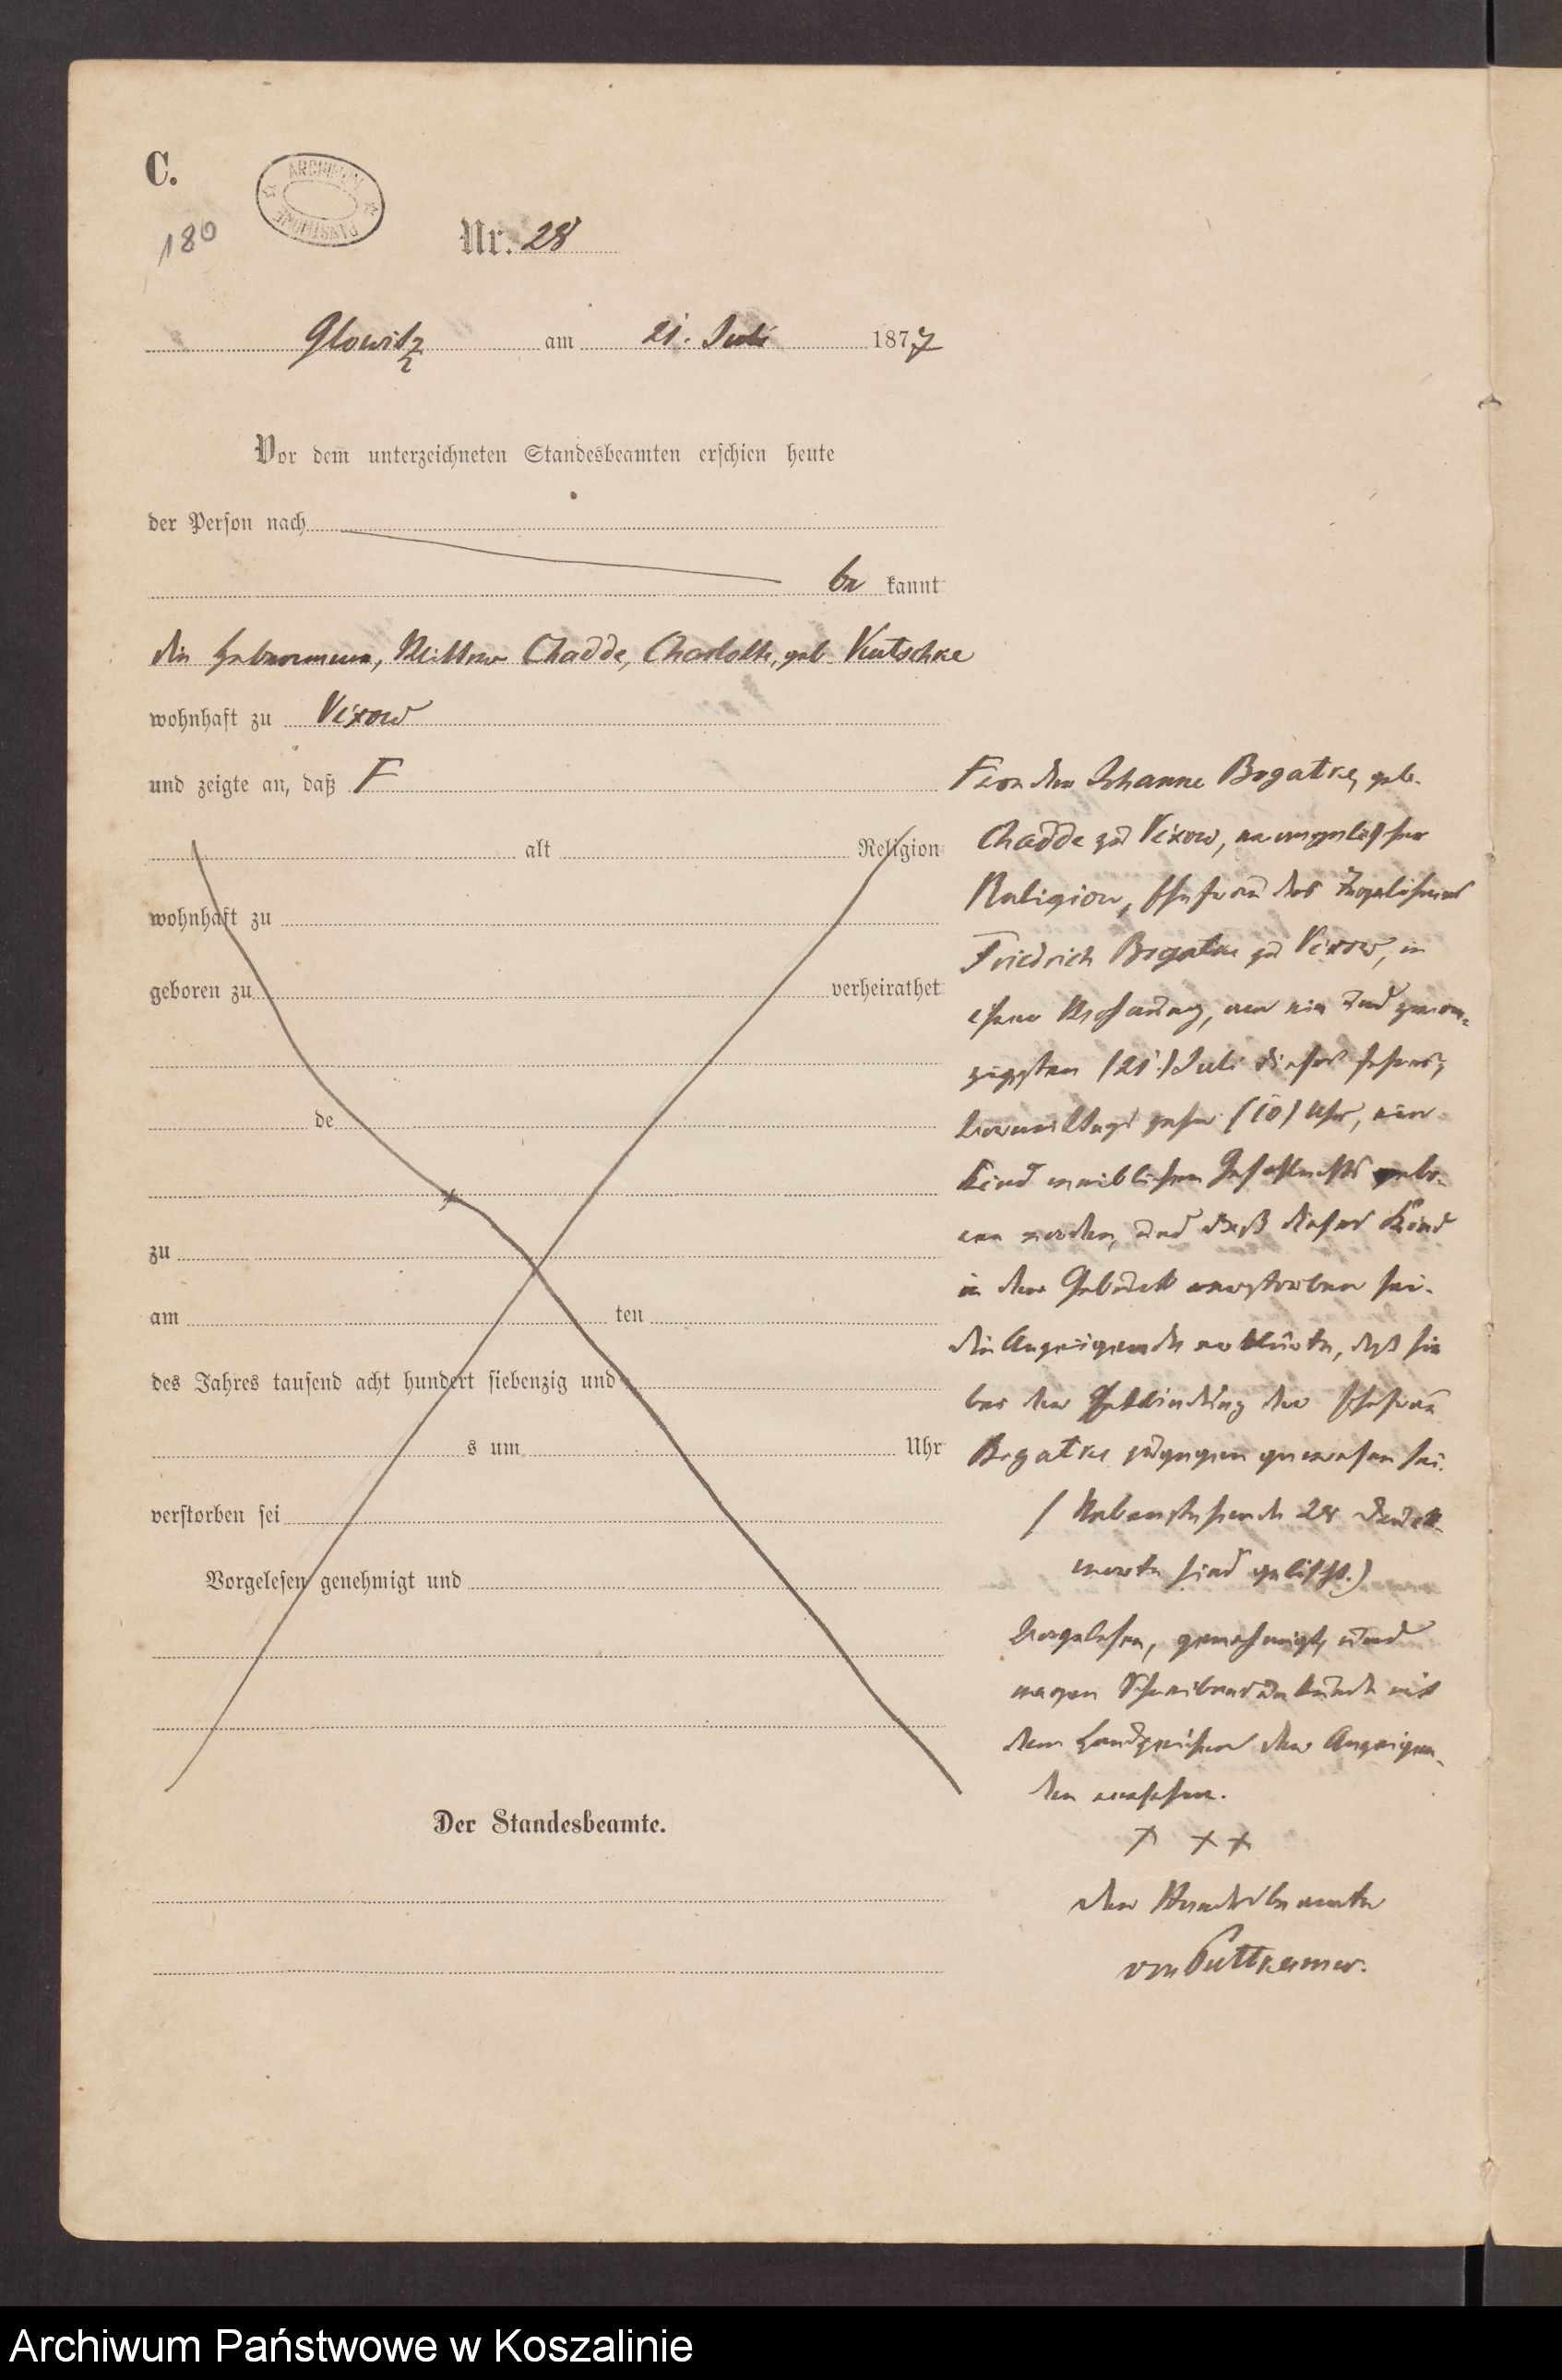 C.
ARCHIWUM PAŃSTWOWE
180
Nr. 28
Glowitz am 21. Juli 1877
Vor dem unterzeichneten Standesbeamten erschien heute
der Person nach
be kannt
die Hebamme, Wittwe Chadde, Charlotte, geb. Kutschke
wohnhaft zu Vixow
und zeigte an, daß F
alt Religion
wohnhaft zu
geboren zu verheirathet
de
zu
am ten
des Jahres tausend acht hundert siebenzig und
s um Uhr
verstorben sei
Vorgelesen genehmigt und
Der Standesbeamte.
F von der Johanne Bogatke, geb.
Chadde zu Vixow, evangelischer
Religion, Ehefrau des
Friedrich Bogatke zu Vixow, in
ihrer Wohnung, am ein und zwan-
zigsten (21.) Juli dieses Jahres,
Vormittags zehn (10) Uhr, ein
Kind weiblichen Geschlechts gebo-
ren worden, und daß dieses Kind
in der Geburt verstorben sei.
Die Anzeigende erklärte, daß sie
bei der Entbindung der Ehefrau
Bogatke zugegen gewesen sei.
(Nebenstehende 28 Druck-
worte sind gelöscht.)
Vorgelesen, genehmigt und
wegen Schreibensunkunde mit
dem Handzeichen der Anzeigen-
den versehen.
+ + +
Der Standesbeamte
von Puttkamer.
Archiwum Państwowe w Koszalinie